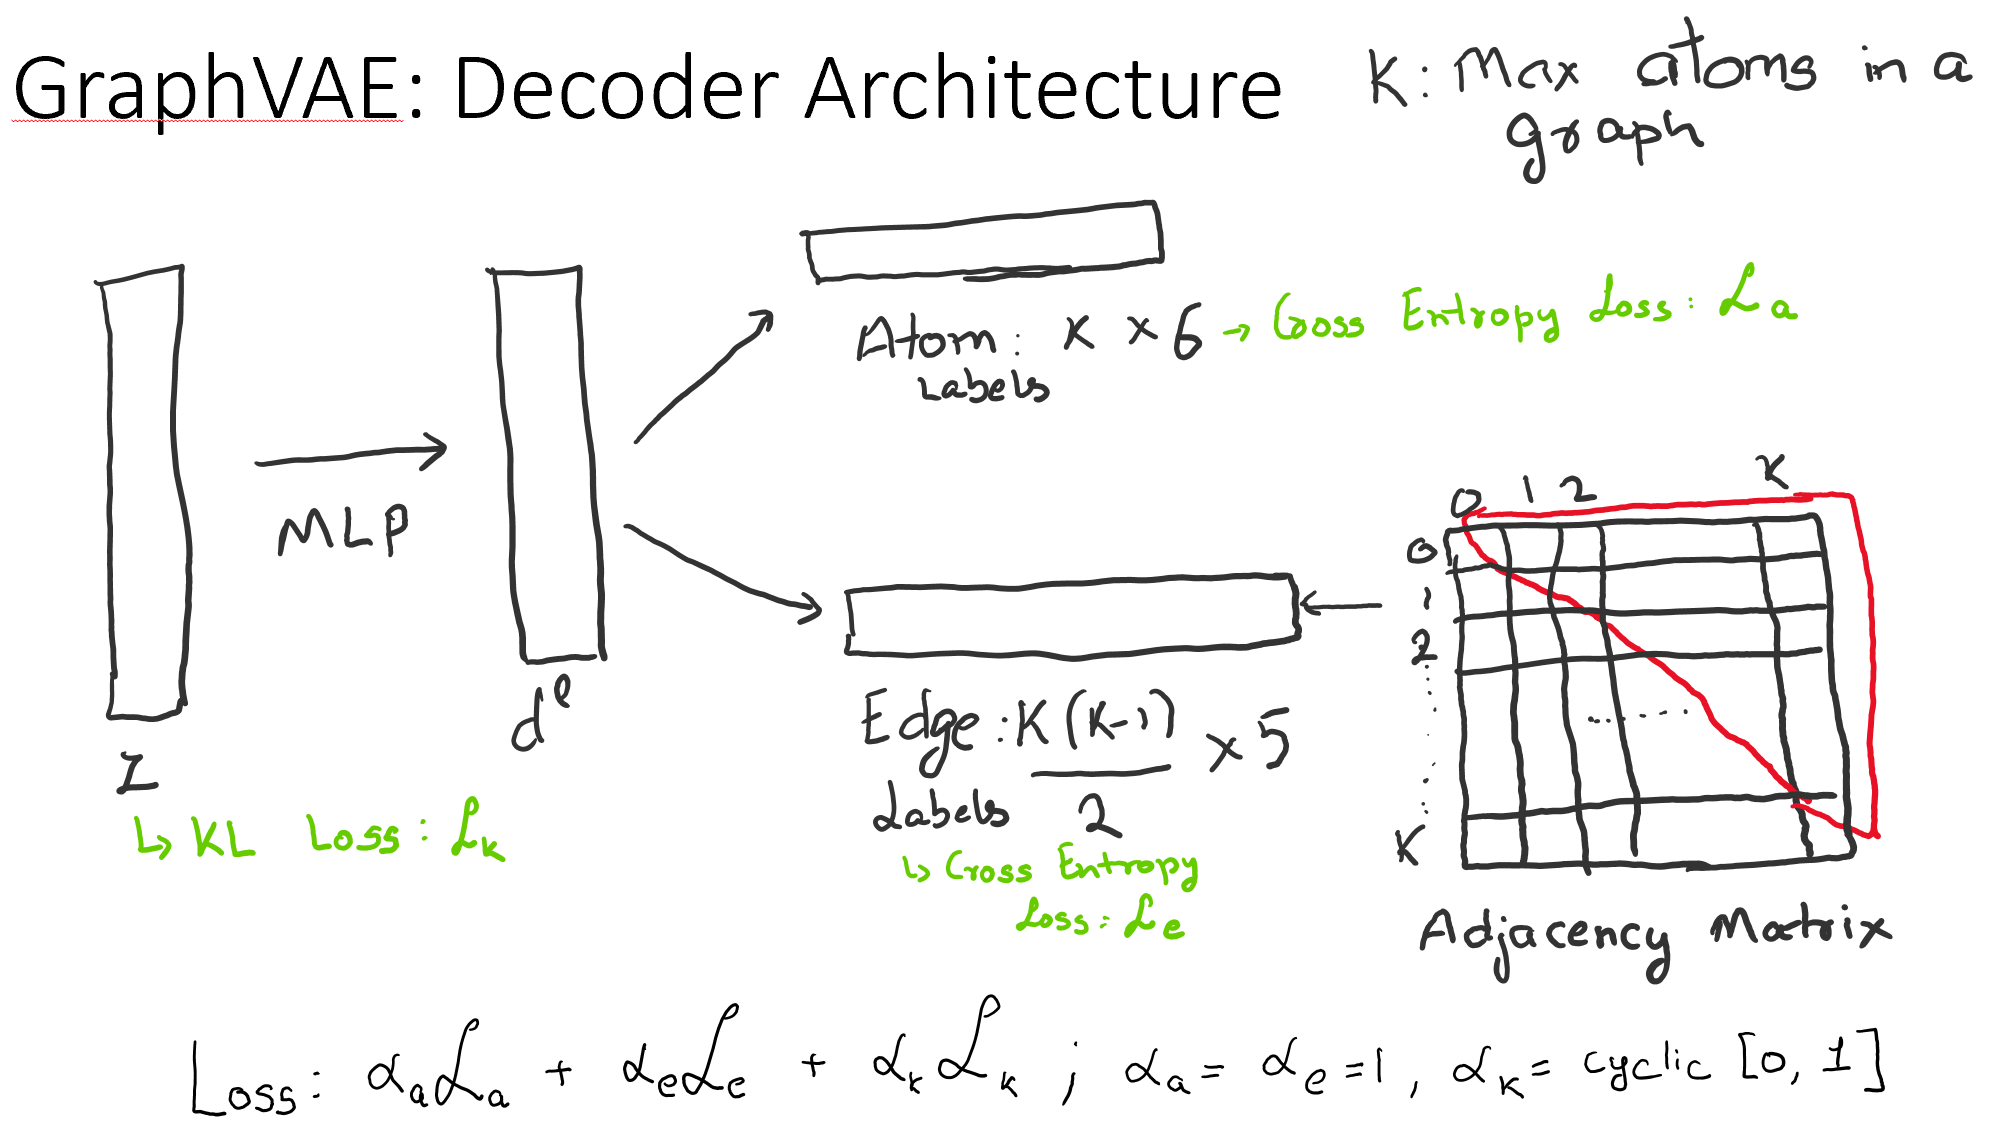 GraphVAE: Decoder Architecture
K: Max atoms in a
graph
Atom: K × 6 → Cross Entropy Loss: ℒa
Labels
MLP
z
↳ KL Loss: ℒk
dˡ
Edge: K(K-1)/2 × 5
Labels
↳ Cross Entropy
Loss: ℒe
0 1 2 K
0
1
2
K
Adjacency Matrix
Loss: αaℒa + αeℒe + αkℒk ; αa = αe = 1, αk = cyclic [0, 1]